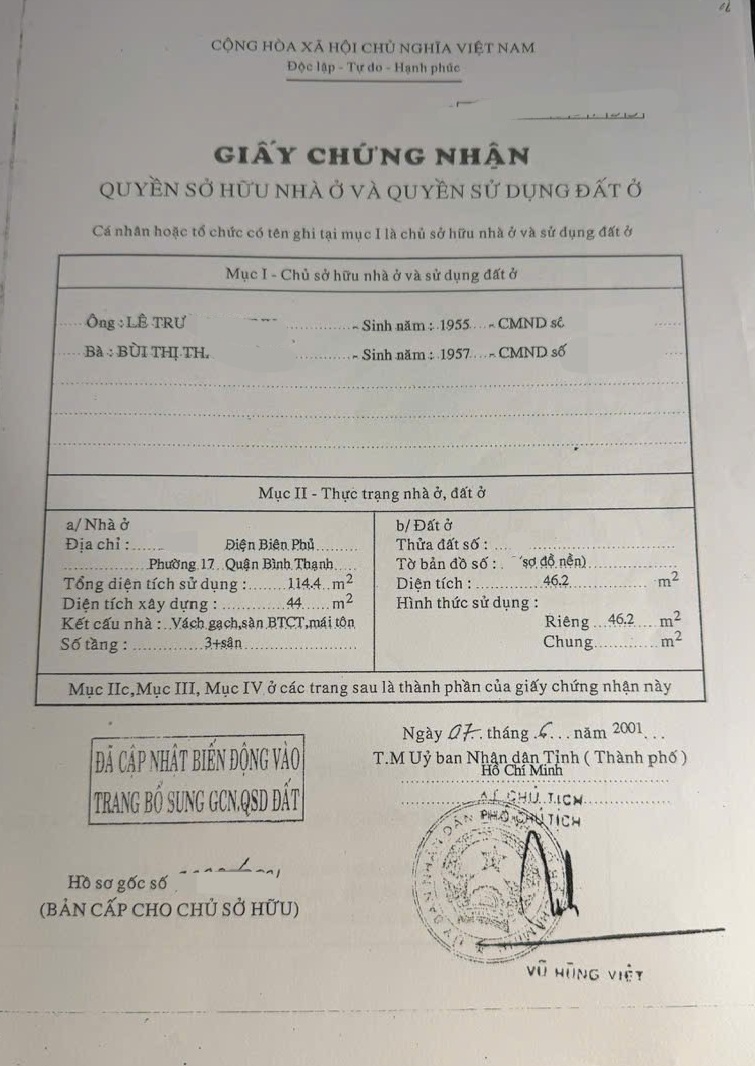 CỘNG HÒA XÃ HỘI CHỦ NGHĨA VIỆT NAM
Độc lập - Tự do - Hạnh phúc
GIẤY CHỨNG NHẬN
QUYỀN SỞ HỮU NHÀ Ở VÀ QUYỀN SỬ DỤNG ĐẤT Ở
Cá nhân hoặc tổ chức có tên ghi tại mục I là chủ sở hữu nhà ở và sử dụng đất ở
Mục I - Chủ sở hữu nhà ở và sử dụng đất ở
Ông : LÊ TRƯ - Sinh năm : 1955 - CMND số
Bà : BÙI THỊ TH. - Sinh năm : 1957 - CMND số
Mục II - Thực trạng nhà ở, đất ở
a/ Nhà ở
Địa chỉ : Điện Biên Phủ
Phường 17 Quận Bình Thạnh
Tổng diện tích sử dụng : 114.4 m2
Diện tích xây dựng : 44 m2
Kết cấu nhà : Vách gạch,sàn BTCT,mái tôn
Số tầng : 3+sân
b/ Đất ở
Thửa đất số :
Tờ bản đồ số : sơ đồ nền)
Diện tích : 46.2 m2
Hình thức sử dụng :
Riêng 46.2 m2
Chung m2
Mục IIc,Mục III, Mục IV ở các trang sau là thành phần của giấy chứng nhận này
ĐÃ CẬP NHẬT BIẾN ĐỘNG VÀO
TRANG BỔ SUNG GCN,QSD ĐẤT
Hồ sơ gốc số
(BẢN CẤP CHO CHỦ SỞ HỮU)
Ngày 07 tháng 6 năm 2001
T.M Uỷ ban Nhân dân Tỉnh ( Thành phố )
Hồ Chí Minh
CHỦ TỊCH
PHÓ CHỦ TỊCH
VŨ HÙNG VIỆT